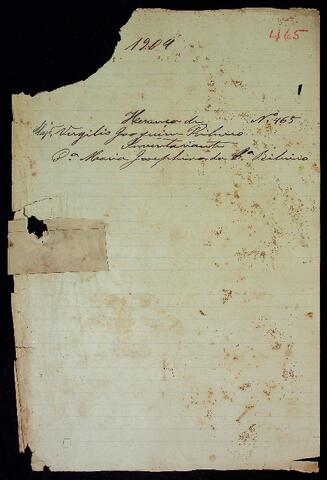 465
1904
Herança de Nº 465
Majr Virgilio Joaquim Ribeiro
Inventariante
D. Maria Josephina da Sª Ribeiro